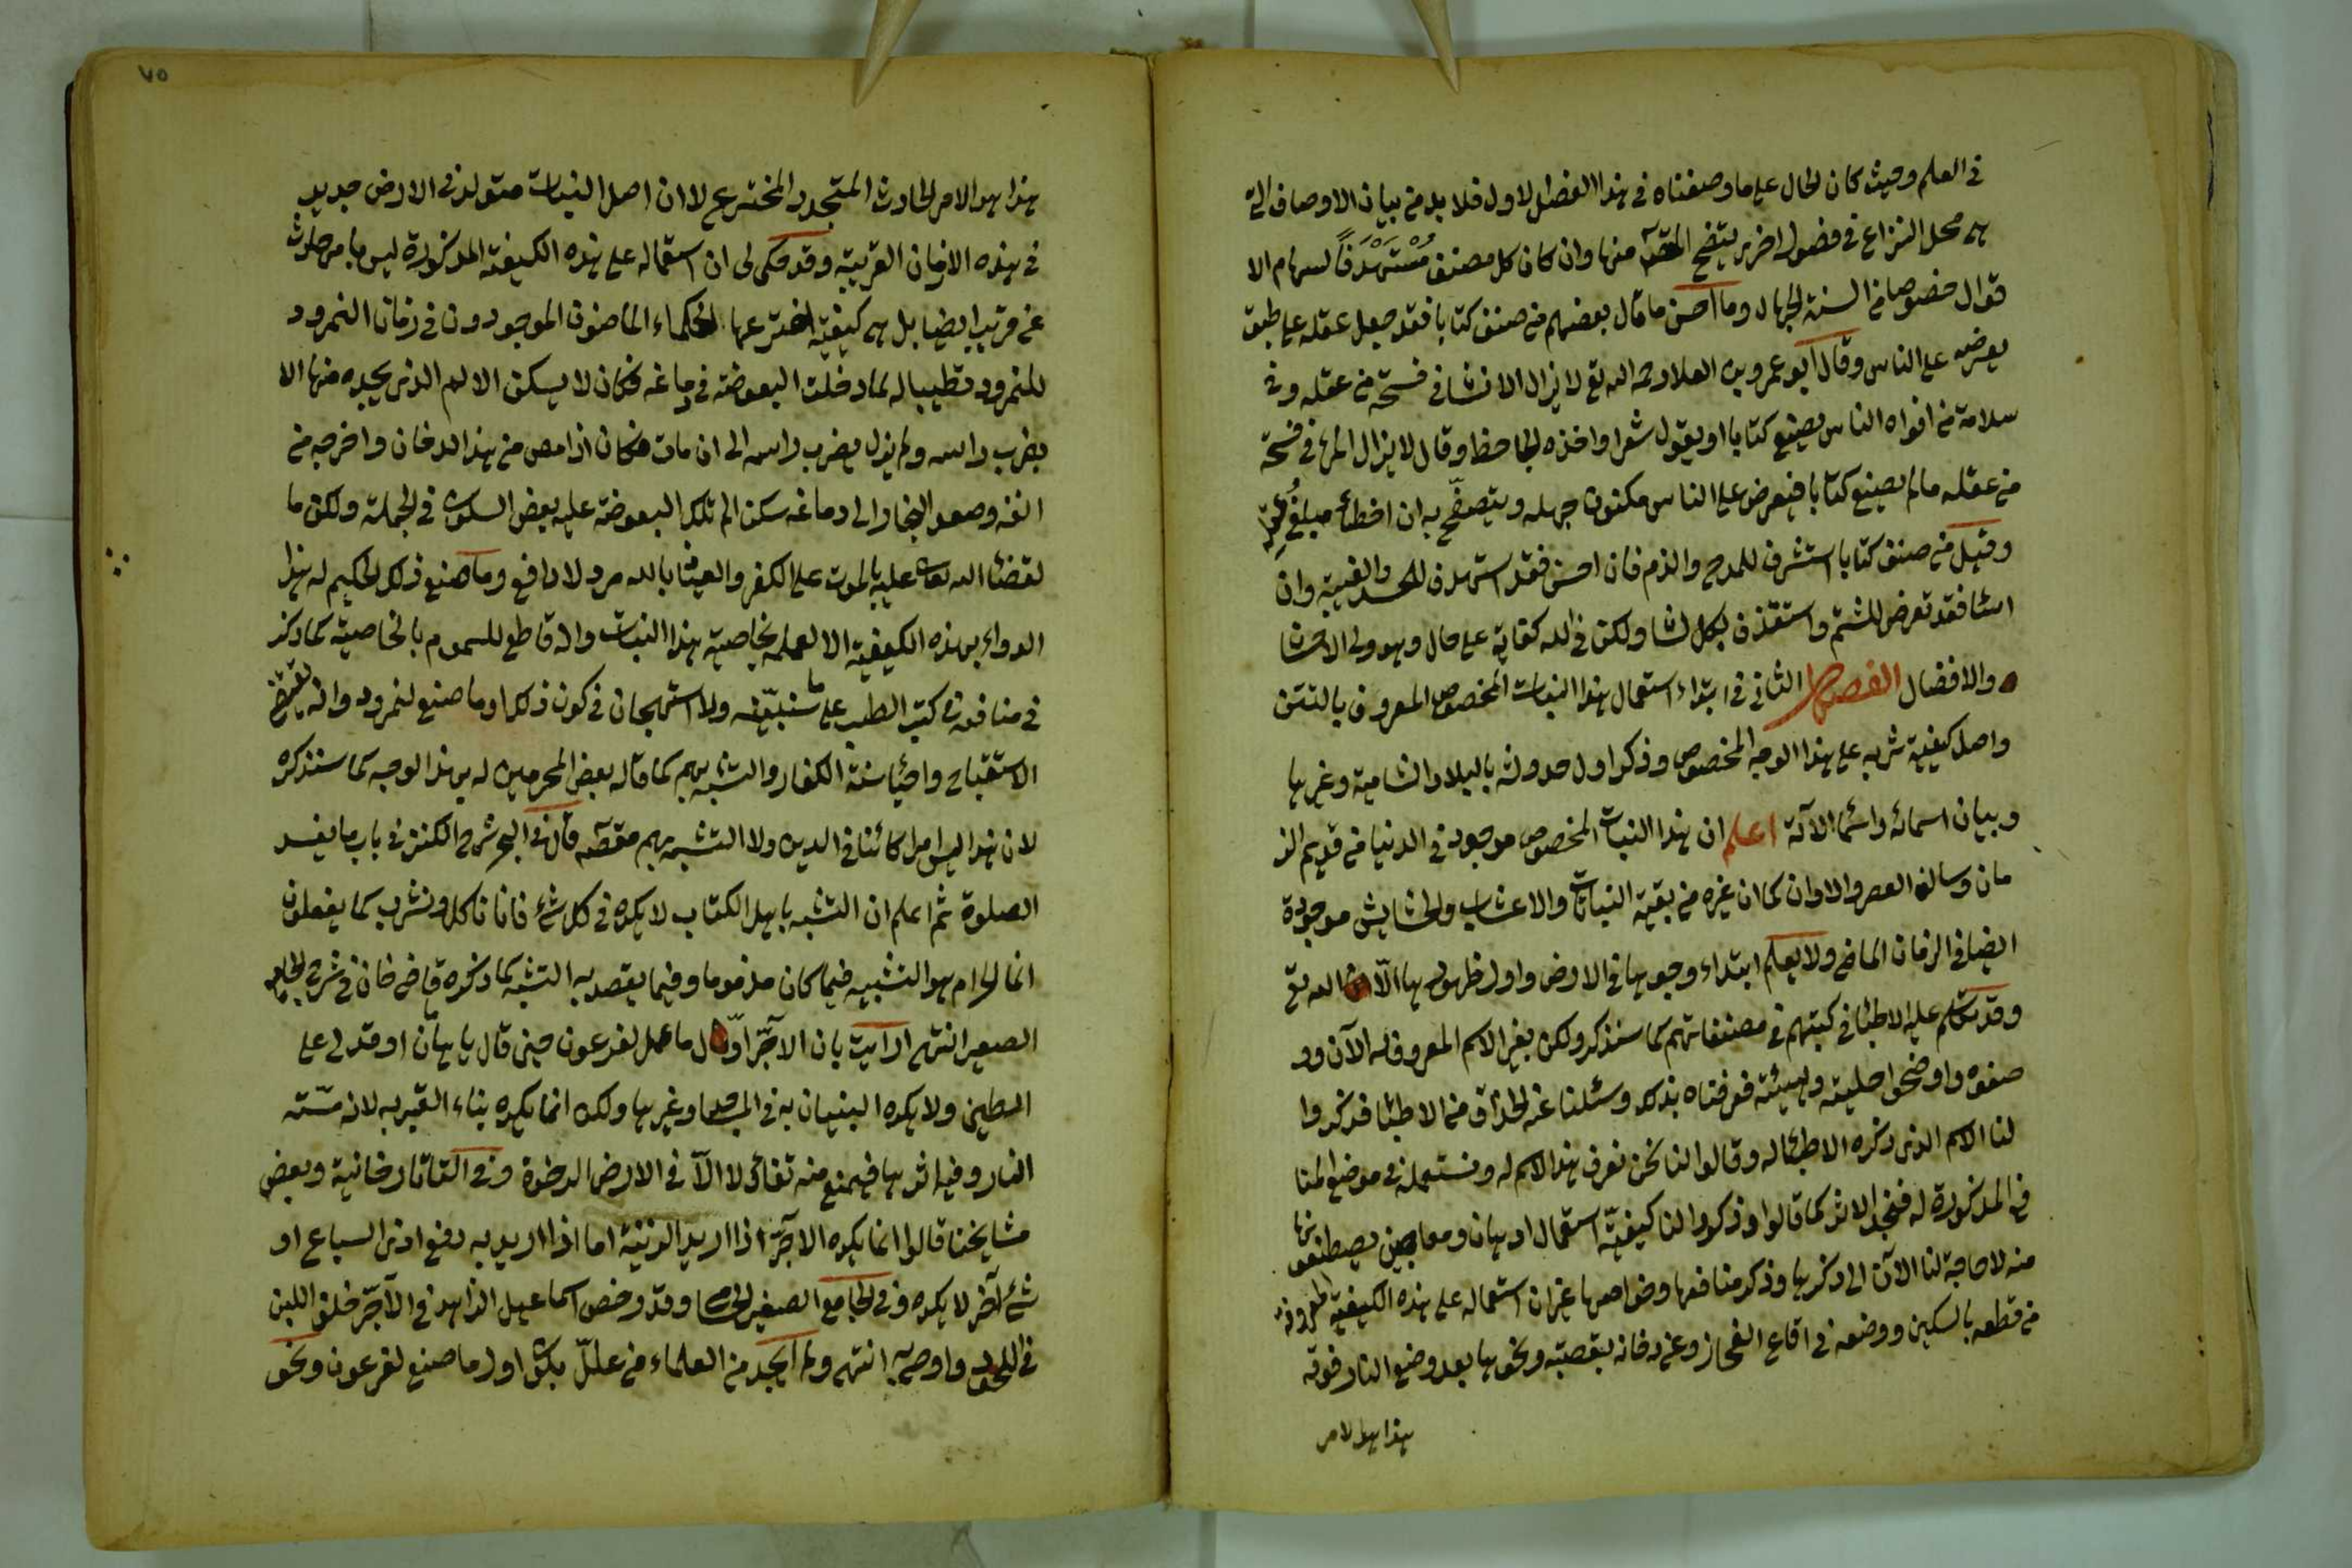 في العلم وحيث كان الحال على ما وصفناه في هذا الفصل الاول فلا بد من بيان الاوصاف التي
هي محل النزاع في فصول اخرى يتضح المقصد منها وان كان كل مصنف مُسْتَهْدَفًا لسهام الا
قوال خصوصا من السنة الجهال وما احسن ما قال بعضهم من صنف كتابا فقد جعل عقله على طبق
يعرضه على الناس وقال ابو عمرو بن العلا رحمه الله تع لا يزال الانسان في فسحة من عقله وفي
سلامة من افواه الناس ما لم يصنع كتابا او يقول شعرا واخذه الجاحظ وقال لا يزال المرء في فسحة
من عقله ما لم يصنع كتابا فيعرض على الناس مكنون جهله ويتصفح به ان اخطأ مبلغ عقله
وقيل من صنف كتابا استشرف للمدح والذم فان احسن فقد استهدف للحسد والغيبة وان
اسا فقد تعرض للشتم واستقذف بكل لسا ولكن في الله كفاية على كل حال وهو ولي الاحسا
ن والافضال الفصل الثاني في ابتداء استعمال هذا النبات المخصوص المعروف بالتتن
واصل كيفية شربه على هذا الوجه المخصوص وذكر اول حدوثه بالبلاد الشامية وغيرها
وبيان اسمائه واسما الآلة اعلم ان هذا النبات المخصوص موجود في الدنيا من قديم الز
مان وسالف العصر والاوان كما ان غيره من بقية النباتات والاعشاب والحشايش موجودة
ايضا في الزمان الماضي ولا يعلم ابتداء وجودها في الارض واول ظهورها الّا الله تع
وقد تكلم عليه الاطبا في كتبهم في مصنفاتهم كما سنذكر ولكن بغير الاسم المعروف له الآن وو
صفوه واوضحوا حليته وهيئته فعرفناه بذلك وسئلنا عنه الحذاق من الاطبا فذكروا
لنا الاسم الذي ذكره الاطبا له وقالوا لنا نحن نعرف هذا الاسم له ونستعمله في مواضع المنا
فع المذكورة له فنجد الاثر كما قالوا وذكروا لنا كيفيّة استعمال ادهان ومعاجين يصطنعونها
منه لا حاجة لنا الآن الى ذكرها وذكر منافعها وخواصها غير ان استعماله على هذه الكيفية المعروفة
من قطعه بالسكين ووضعه في اقاع الفخار وعب دخانه بقصبة ونحوها بعد وضع النار فوقه
هذا هو الامر
٧٥
هذا هو الامر الحادث المتجدد المخترع لا ان اصل النبات متولد في الارض جديد
في هذه الازمان القريبة وقد حكى لي ان استعماله على هذه الكيفية المذكورة ليس بامر حادث
عن قريب ايضا بل هي كيفية اخترعها الحكماء الماضون الموجودون في زمان النمرود
للنمرود تطبيبا له لما دخلت البعوضة في دماغه فكان لا يسكن الالم الذي يجده منها الا
بضرب راسه ولم يزل يضرب راسه الى ان مات فكان اذا مص من هذا الدخان واخرجه من
انفه وصعد البخار الى دماغه سكن الم تلك البعوضة عليه بعض السكون في الجملة ولكن ما
لقضاء الله تعالى عليه بالموت على الكفر والعياذ بالله مرد ولا دافع وما صنع ذلك الحكيم له هذا
الدواء بهذه الكيفية الا لعلمه بخاصية هذا النبات وانه قاطع للسموم بالخاصية كما ذكر
في منافعه في كتب الطب على ما سنبيّنه ولا استهجان في كون ذلك اول ما صنع لنمرود وانه يقتضي
الاستقباح واحيا سنة الكفار والتشبه بهم كما قاله بعض المحرمين له بهذا الوجه كما سنذكره
لان هذا ليس امرا كائنا في الدين ولا التشبه بهم مقصد قال في البحر شرح الكنز في باب ما يفسد
الصلوة ثم اعلم ان التشبه باهل الكتاب لا يكره في كل شئ فانا ناكل ونشرب كما يفعلون
انما الحرام هو التشبيه فيما كان مذموما وفيما يقصد به التشبه كما ذكره قاضي خان في شرح الجامع
الصغير انتهى ارايت بان الآجرّ اوّل ما عمل لفرعون حين قال يا هامان اوقد لي على
الطين ولا يكره البنيان به في المساجد وغيرها ولكن انما يكره بناء القبر به لانه مسّته
النار وفيه اثرها فيمنع منه تفائلا الّا في الارض الرخوة وفي التاتارخانية وبعض
مشايخنا قالوا انما يكره الآجرّ اذا اريد الزينة اما اذا اريد به دفع اذى السباع او
شئ آخر لا يكره وفي الجامع الصغير الحسا وقد رخص اسماعيل الزاهد في الآجرّ خلف اللبن
في اللحد واوصى به انتهى ولم اجد من العلماء من علّل بكونه اول ما صنع لفرعون ونحو